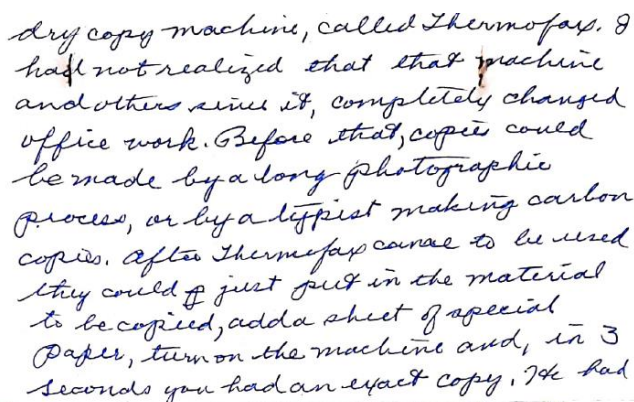 dry copy machine, called Thermofax. I
had not realized that that machine
and others since it, completely changed
office work. Before that, copies could
be made by a long photographic
process, or by a typist making carbon
copies. After Thermofax came to be used
they could just put in the material
to be copied, add a sheet of special
paper, turn on the machine and, in 3
seconds you had an exact copy. He had